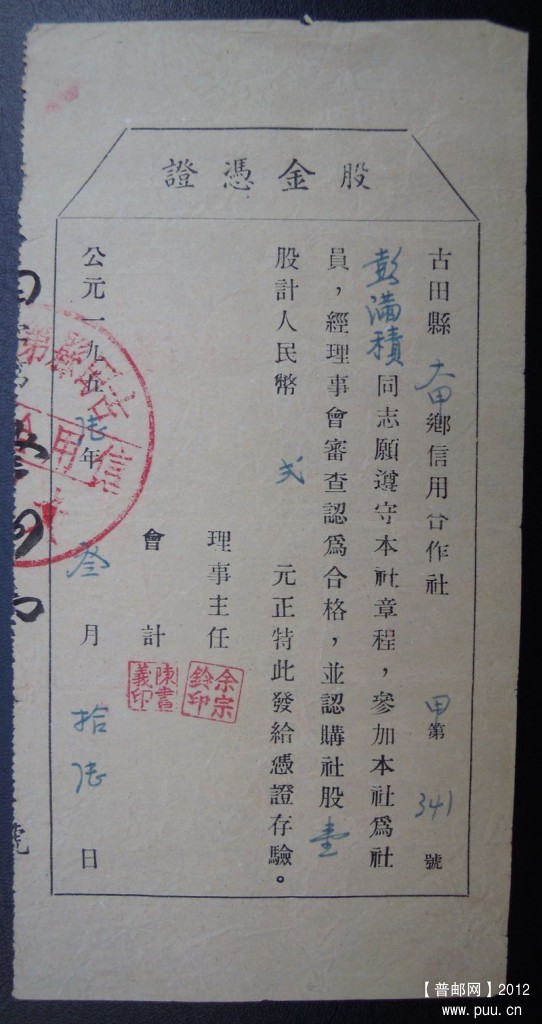 股金憑證
古田縣 大甲鄉信用合作社 甲第341號
彭滿積同志願遵守本社章程，參加本社為社
員，經理事會審查認為合格，並認購社股壹
股計人民幣 弍 元正特此發給憑證存驗。
理事主任 余宗鈴印
會計 陳書義印
公元一九五陸年 叁月 拾陸日
號
【普邮网】2012
www.puu.cn